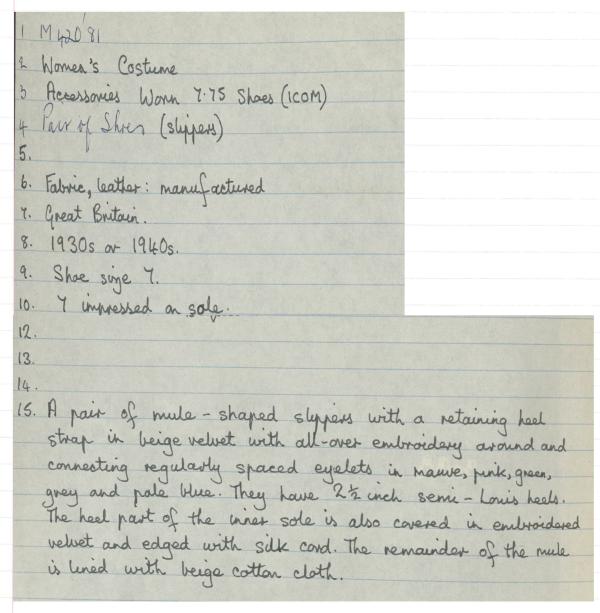 1 M42D'81
2 Women's Costume
3 Accessories Worn 7.75 Shoes (ICOM)
4 Pair of Shoes (slippers)
5.
6. Fabric, leather: manufactured
7. Great Britain.
8. 1930s or 1940s.
9. Shoe size 7.
10. 7 impressed on sole.
12.
13.
14.
15. A pair of mule-shaped slippers with a retaining heel
strap in beige velvet with all-over embroidery around and
connecting regularly spaced eyelets in mauve, pink, green,
grey and pale blue. They have 2½ inch semi-Louis heels.
The heel part of the inner sole is also covered in embroidered
velvet and edged with silk cord. The remainder of the mule
is lined with beige cotton cloth.